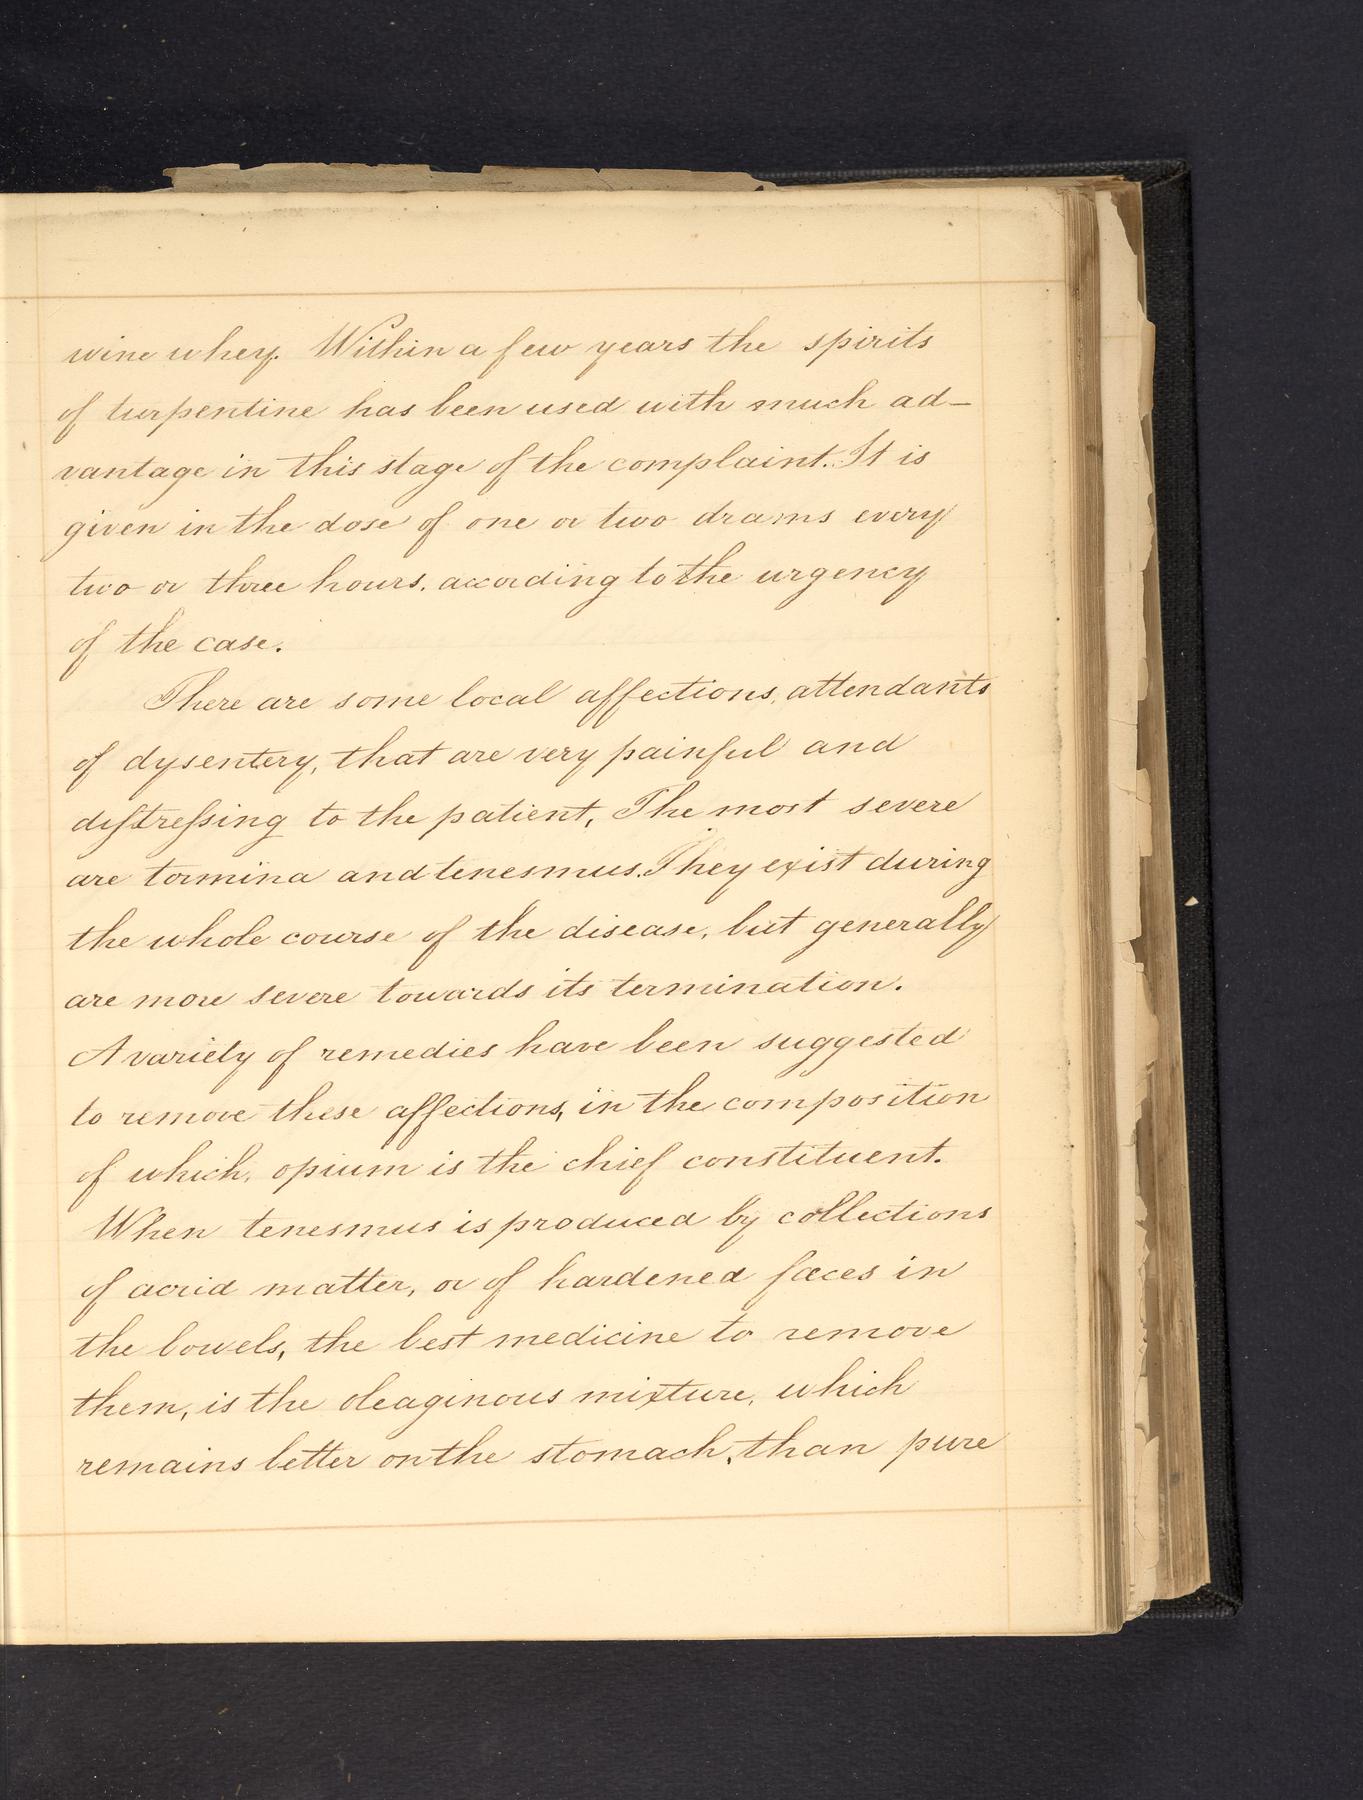 wine whey. Within a few years the spirits
of turpentine has been used with much ad-
vantage in this stage of the complaint. It is
given in the dose of one or two drams every
two or three hours. according to the urgency
of the case.
There are some local affections, attendants
of dysentery, that are very painful and
diſtreſsing to the patient, The most severe
are tormina and tenesmus. They exist during
the whole course of the disease, but generally
are more severe towards its termination.
A variety of remedies have been suggested
to remove these affections, in the composition
of which, opium is the chief constituent.
When tenesmus is produced by collections
of acrid matter, or of hardened fæces in
the bowels, the best medicine to remove
them, is the oleaginous mixture, which
remains better on the stomach, than pure